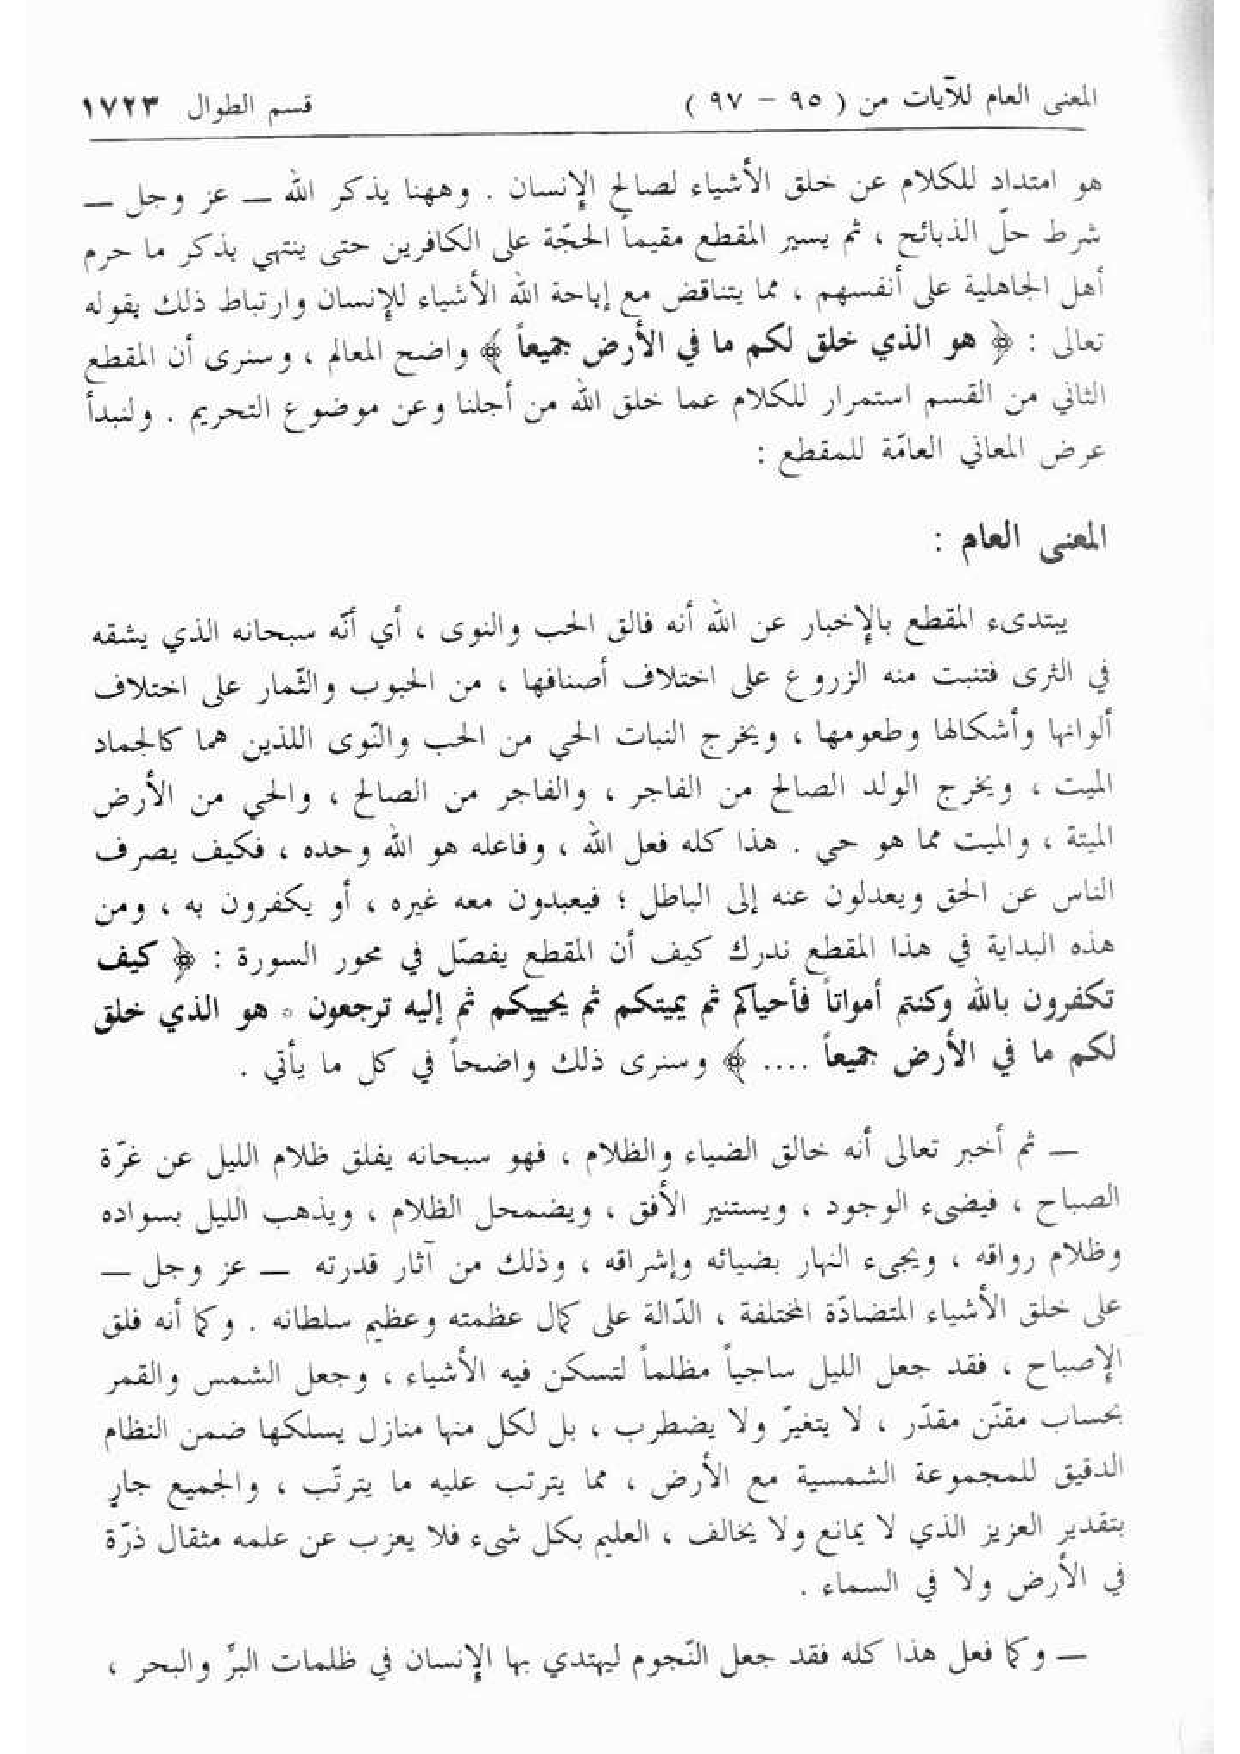 المعنى العام للآيات من ( ٩٥ – ٩٧ )
قسم الطوال ١٧٢٣
هو امتداد للكلام عن خلق الأشياء لصالح الإنسان . وههنا يذكر الله — عز وجل —
شرط حلّ الذبائح ، ثم يسير المقطع مقيماً الحجّة على الكافرين حتى ينتهي بذكر ما حرم
أهل الجاهلية على أنفسهم ، مما يتناقض مع إباحة الله الأشياء للإنسان وارتباط ذلك بقوله
تعالى : ﴿ هو الذي خلق لكم ما في الأرض جميعاً ﴾ واضح المعالم ، وسنرى أن المقطع
الثاني من القسم استمرار للكلام عما خلق الله من أجلنا وعن موضوع التحريم . ولنبدأ
عرض المعاني العامّة للمقطع :
المعنى العام :
يبتدىء المقطع بالإخبار عن الله أنه فالق الحب والنوى ، أي أنّه سبحانه الذي يشقه
في الثرى فتنبت منه الزروع على اختلاف أصنافها ، من الحبوب والثّمار على اختلاف
ألوانها وأشكالها وطعومها ، ويخرج النبات الحي من الحب والنّوى اللذين هما كالجماد
الميت ، ويخرج الولد الصالح من الفاجر ، والفاجر من الصالح ، والحي من الأرض
الميتة ، والميت مما هو حي . هذا كله فعل الله ، وفاعله هو الله وحده ، فكيف يصرف
الناس عن الحق ويعدلون عنه إلى الباطل ؛ فيعبدون معه غيره ، أو يكفرون به ، ومن
هذه البداية في هذا المقطع ندرك كيف أن المقطع يفصّل في محور السورة : ﴿ كيف
تكفرون بالله وكنتم أمواتاً فأحياكم ثم يميتكم ثم يحييكم ثم إليه ترجعون ٥ هو الذي خلق
لكم ما في الأرض جميعاً .... ﴾ وسنرى ذلك واضحاً في كل ما يأتي .
— ثم أخبر تعالى أنه خالق الضياء والظلام ، فهو سبحانه يفلق ظلام الليل عن غرّة
الصباح ، فيضىء الوجود ، ويستنير الأفق ، ويضمحل الظلام ، ويذهب الليل بسواده
وظلام رواقه ، ويجىء النهار بضيائه وإشراقه ، وذلك من آثار قدرته — عز وجل —
على خلق الأشياء المتضادّة المختلفة ، الدّالة على كمال عظمته وعظيم سلطانه . وكما أنه فلق
الإصباح ، فقد جعل الليل ساجياً مظلماً لتسكن فيه الأشياء ، وجعل الشمس والقمر
بحساب مقنّن مقدّر ، لا يتغيرّ ولا يضطرب ، بل لكل منها منازل يسلكها ضمن النظام
الدقيق للمجموعة الشمسية مع الأرض ، مما يترتب عليه ما يترتّب ، والجميع جارٍ
بتقدير العزيز الذي لا يمانع ولا يخالف ، العليم بكل شىء فلا يعزب عن علمه مثقال ذرّة
في الأرض ولا في السماء .
— وكما فعل هذا كله فقد جعل النّجوم ليهتدي بها الإنسان في ظلمات البرّ والبحر ،